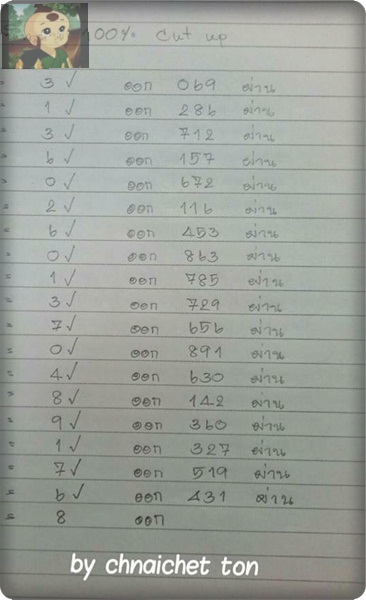 100% Cut up
" 3 ✓ ออก 069 ผ่าน
" 1 ✓ ออก 286 ผ่าน
" 3 ✓ ออก 712 ผ่าน
" 6 ✓ ออก 157 ผ่าน
" 0 ✓ ออก 672 ผ่าน
" 2 ✓ ออก 116 ผ่าน
" 6 ✓ ออก 453 ผ่าน
" 0 ✓ ออก 863 ผ่าน
" 1 ✓ ออก 785 ผ่าน
" 3 ✓ ออก 729 ผ่าน
" 7 ✓ ออก 656 ผ่าน
" 0 ✓ ออก 891 ผ่าน
" 4 ✓ ออก 630 ผ่าน
" 8 ✓ ออก 142 ผ่าน
" 9 ✓ ออก 360 ผ่าน
" 1 ✓ ออก 327 ผ่าน
" 7 ✓ ออก 519 ผ่าน
" 6 ✓ ออก 431 ผ่าน
" 8 ออก
by chnaichet ton